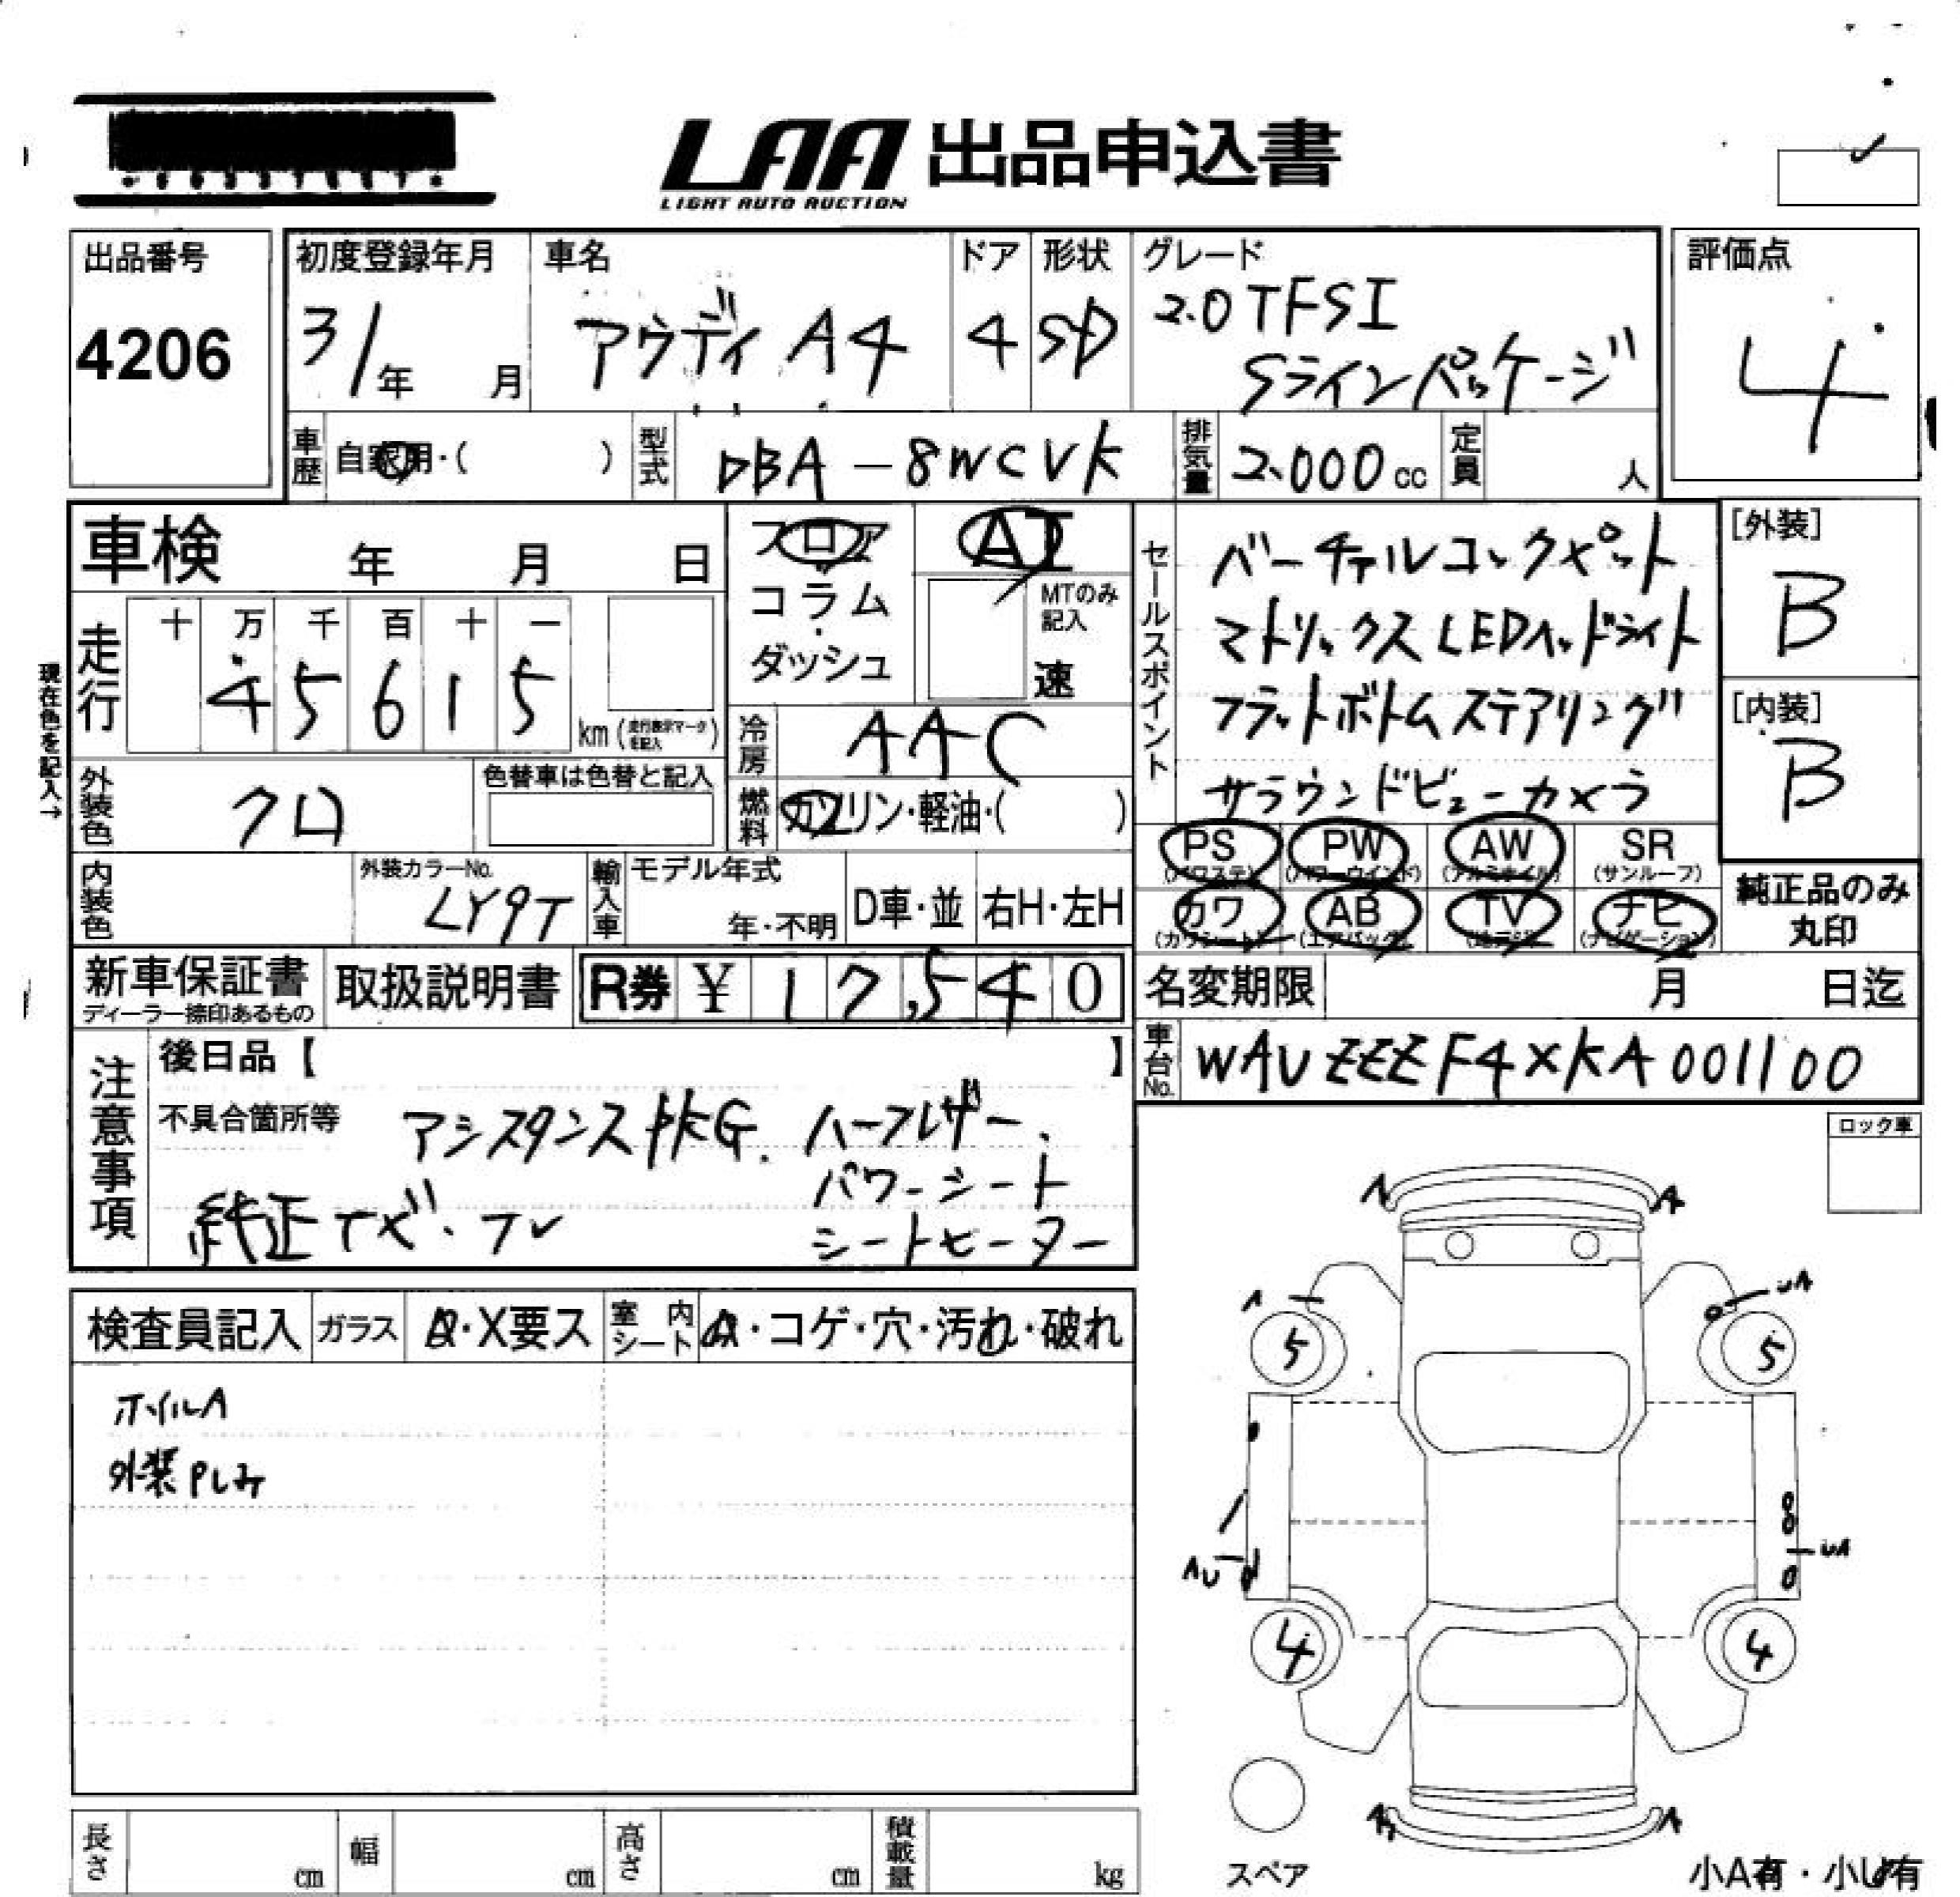 LAA 出品申込書
LIGHT AUTO AUCTION
出品番号
4206
初度登録年月
31年 月
車名
アウディ A4
ドア
4
形状
SD
グレード
2.0 TFSI
Sラインパッケージ
評価点
4
車歴 自家用・( )
型式 DBA-8WCVK
排気量 2.000cc
定員 人
車検 年 月 日
フロア
コラム
ダッシュ
AT
MTのみ
記入
速
セールスポイント
バーチャルコックピット
マトリックスLEDヘッドライト
フラットボトムステアリング
サラウンドビューカメラ
[外装]
B
[内装]
B
現在色を記入→
走行
十 万 千 百 十 一
4 5 6 1 5
km (走行表示マークを記入)
冷房 AAC
燃料 ガソリン・軽油・( )
外装色 クロ
色替車は色替と記入
内装色
外装カラーNo.
LY9T
輸入車
モデル年式
年・不明
D車・並
右H・左H
PS PW AW SR
(パワステ) (パワーウインド) (アルミホイル) (サンルーフ)
カワ AB TV ナビ
(カワシート) (エアバッグ) (地デジ) (ナビゲーション)
純正品のみ
丸印
新車保証書
ディーラー捺印あるもの
取扱説明書
R券 ¥ 17,540
名変期限 月 日迄
車台No. WAUZZZF4XKA001100
注意事項
後日品【 】
不具合箇所等
アシスタンスPKG. ハーフレザー.
パワーシート
純正ナビ・TV
シートヒーター
ロック車
検査員記入 ガラス A・X要ス
室内シート A・コゲ・穴・汚れ・破れ
ホイルA
外装Pしみ
A A
A UA
5 5
AU UA
4 4
A A
スペア
小A有・小U有
長さ cm
幅 cm
高さ cm
積載量 kg